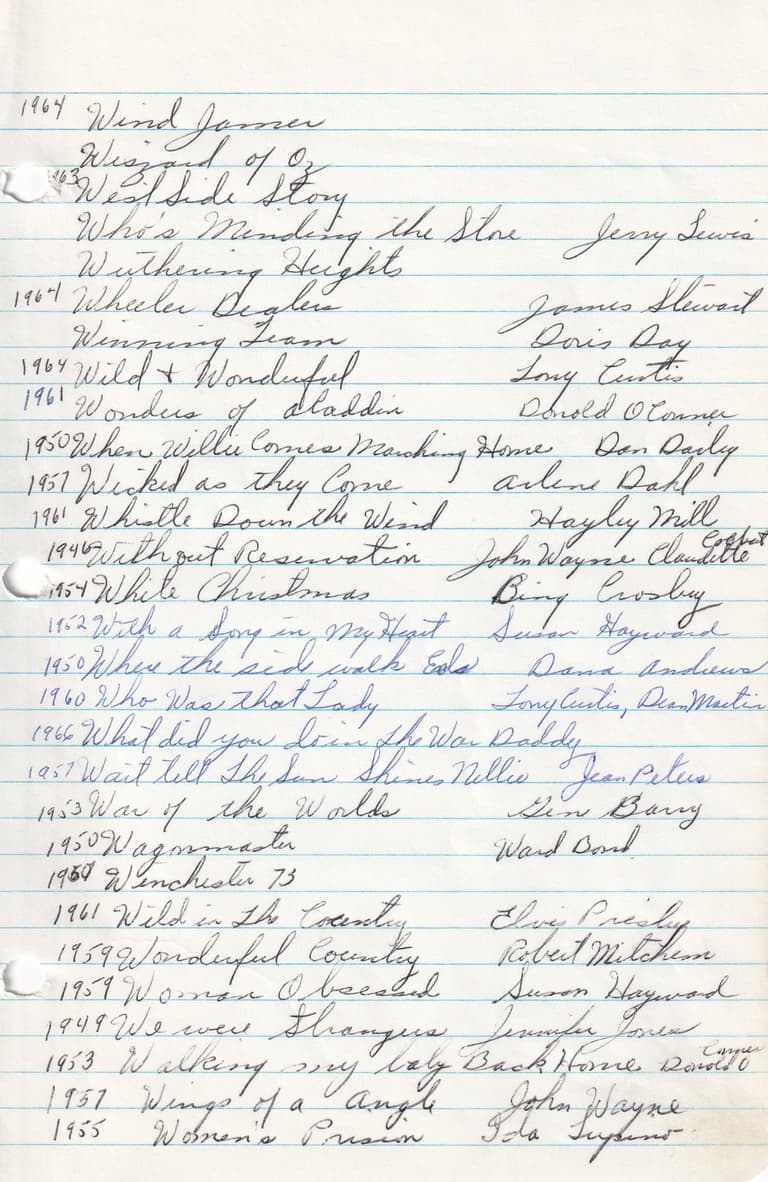 1964 Wind Jamer
Wizzard of Oz
63 West Side Story
Who's Minding the Store Jerry Lewis
Wuthering Heights
1964 Wheeler Dealers James Stewart
Winning Team Doris Day
1964 Wild & Wonderful Tony Curtis
1961 Wonders of aladdin Donold O'Conner
1950 When Willie Comes Marshing Home Dan Dailey
1957 Wicked as they Come arlene Dahl
1961 Whistle Down the Wind Hayley Mill
1946 Without Reservation John Wayne Claudette Colbert
1954 White Christmas Bing Crosby
1952 With a Song in my Heart Susan Hayward
1950 Where the side walk Ends Dana andrews
1960 Who Was that Lady Tony Curtis, Dean Martin
1966 What did you do in the War Daddy
1957 Wait till The Sun Shines Nellie Jean Peters
1953 War of the Worlds Gen Barry
1950 Wagonmaster Ward Bond
Winchester 73
1961 Wild in the Country Elvis Presley
1959 Wonderful Country Robert Mitchem
1959 Woman Obsessed Susan Hayward
1949 We were Strangers Jennifer Jones
1953 Walking my baby Back Home Donold O Conner
1957 Wings of a Angle John Wayne
1955 Women's Prision Ida Lupino